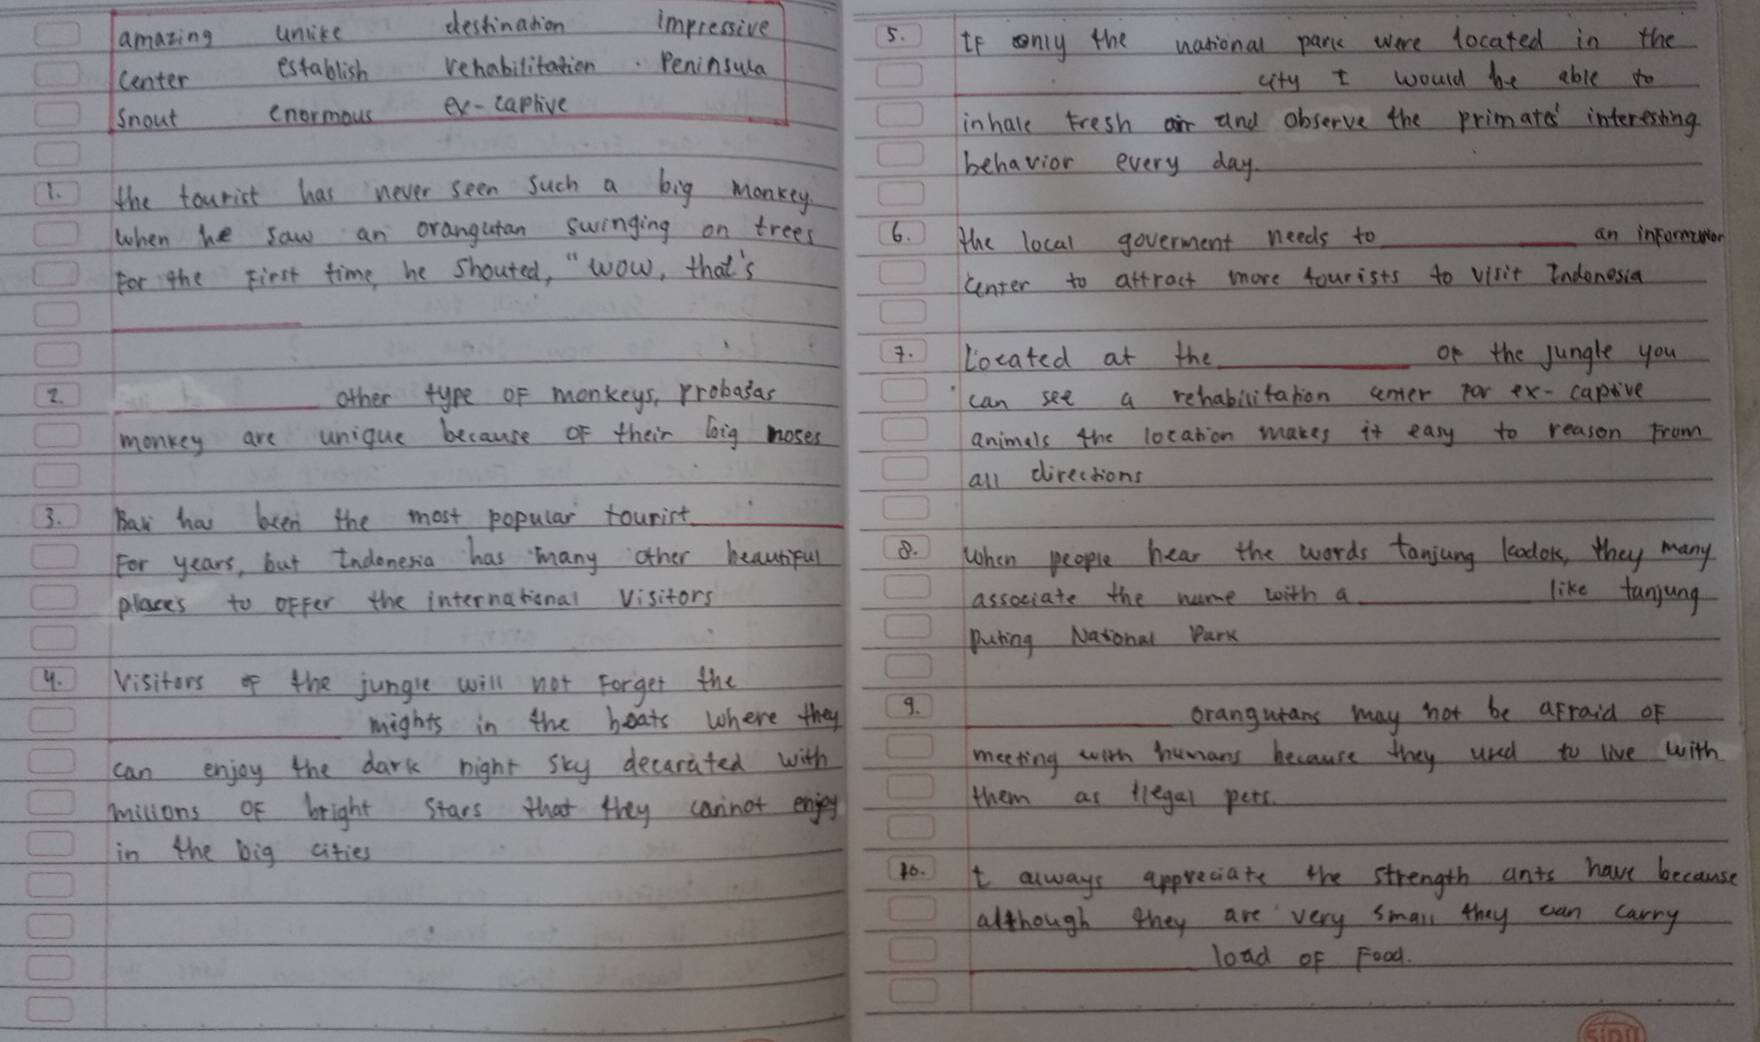 amazing unlike destination impressive
center establish rehabilitation Peninsula
snout enormous ex-captive
1. the tourist has never seen such a big monkey.
when he saw an orangutan swinging on trees
For the first time, he shouted, "wow, that's
2. other type of monkeys, probasas
monkey are unique because of their big noses
3. Bali has been the most popular tourist
For years, but Indonesia has many other beautiful
places to offer the international visitors
4. Visitors of the jungle will not forget the
nights in the boats where they
can enjoy the dark night sky decarated with
millions of bright stars that they cannot enjoy
in the big cities
5. If only the national park were located in the
city I would be able to
inhale fresh air and observe the primates' interesting
behavior every day.
6. the local goverment needs to an information
center to attract more tourists to visit Indonesia
7. Located at the of the jungle you
can see a rehabilitation center for ex-captive
animals the location makes it easy to reason from
all directions
8. When people hear the words tanjung kodok, they many
associate the name with a like tanjung
puting National Park
9. orangutans may not be afraid of
meeting with humans because they used to live with
them as illegal pets.
10. I always appreciate the strength ants have because
although they are very small they can carry
load of food.